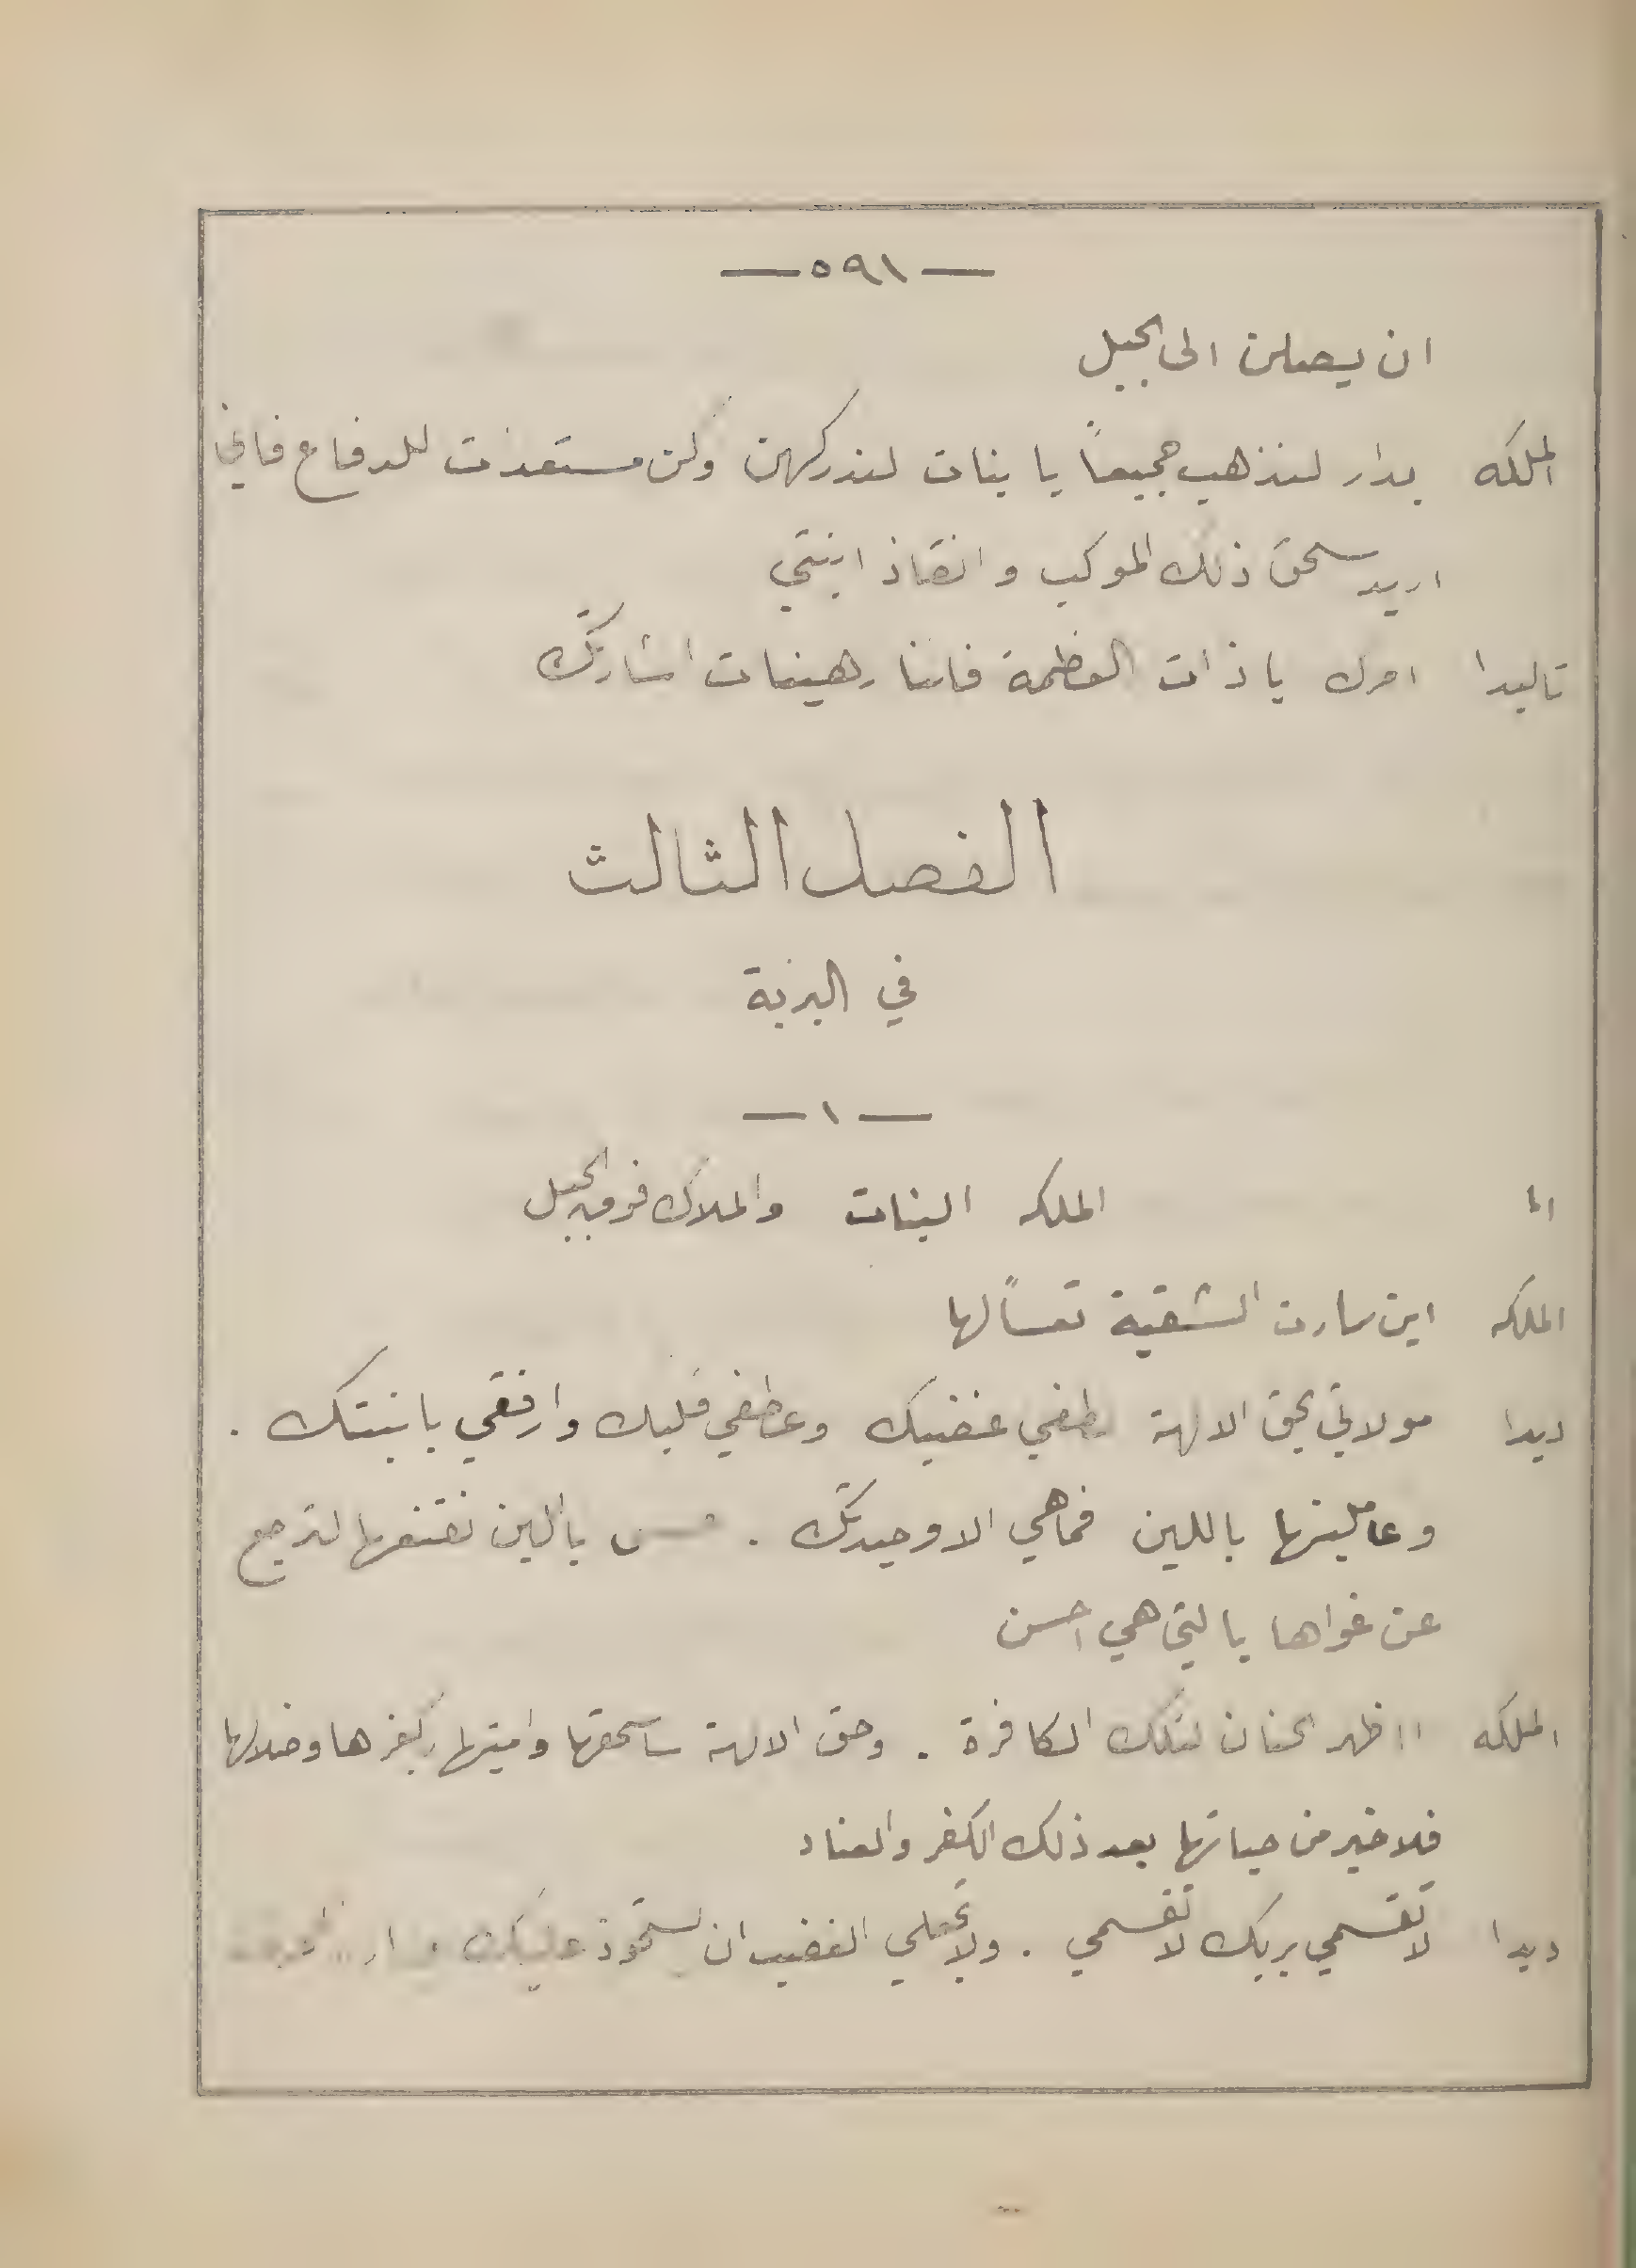 — ٥٩١ —
ان يصلن الى الجبل
الملكه بدار لنذهب جميعاً يا بنات لندركهن وكن مستعدات للدفاع فاني
اريد سحق ذلك الموكب وانقاذ ابنتي
تاليدا امرك يا ذات العظمة فاننا رهينات اشارتك
الفصل الثالث
في البرية
— ١ —
الملكه البنات والملاك فوق الجبل
الملكه اين سارت الشقية تعساً لها
ديدا مولاتي بحق الالهة لطفي غضبك وعطفي قلبك وارفقي بابنتك .
وعامليها باللين فما هي الا وحيدتك . باللين نقنعها لترجع
عن غواها بالتي هي احسن
الملكه ااظهر الحنان لتلك الكافرة . وحق الالهة ساسحقها واميتها بكفرها وضلالها
فلا خير من حياتها بعد ذلك الكفر والعناد
ديدا لا تقسمي بربك لا تقسمي . ولا تجعلي الغضب ان يستحوذ عليك .